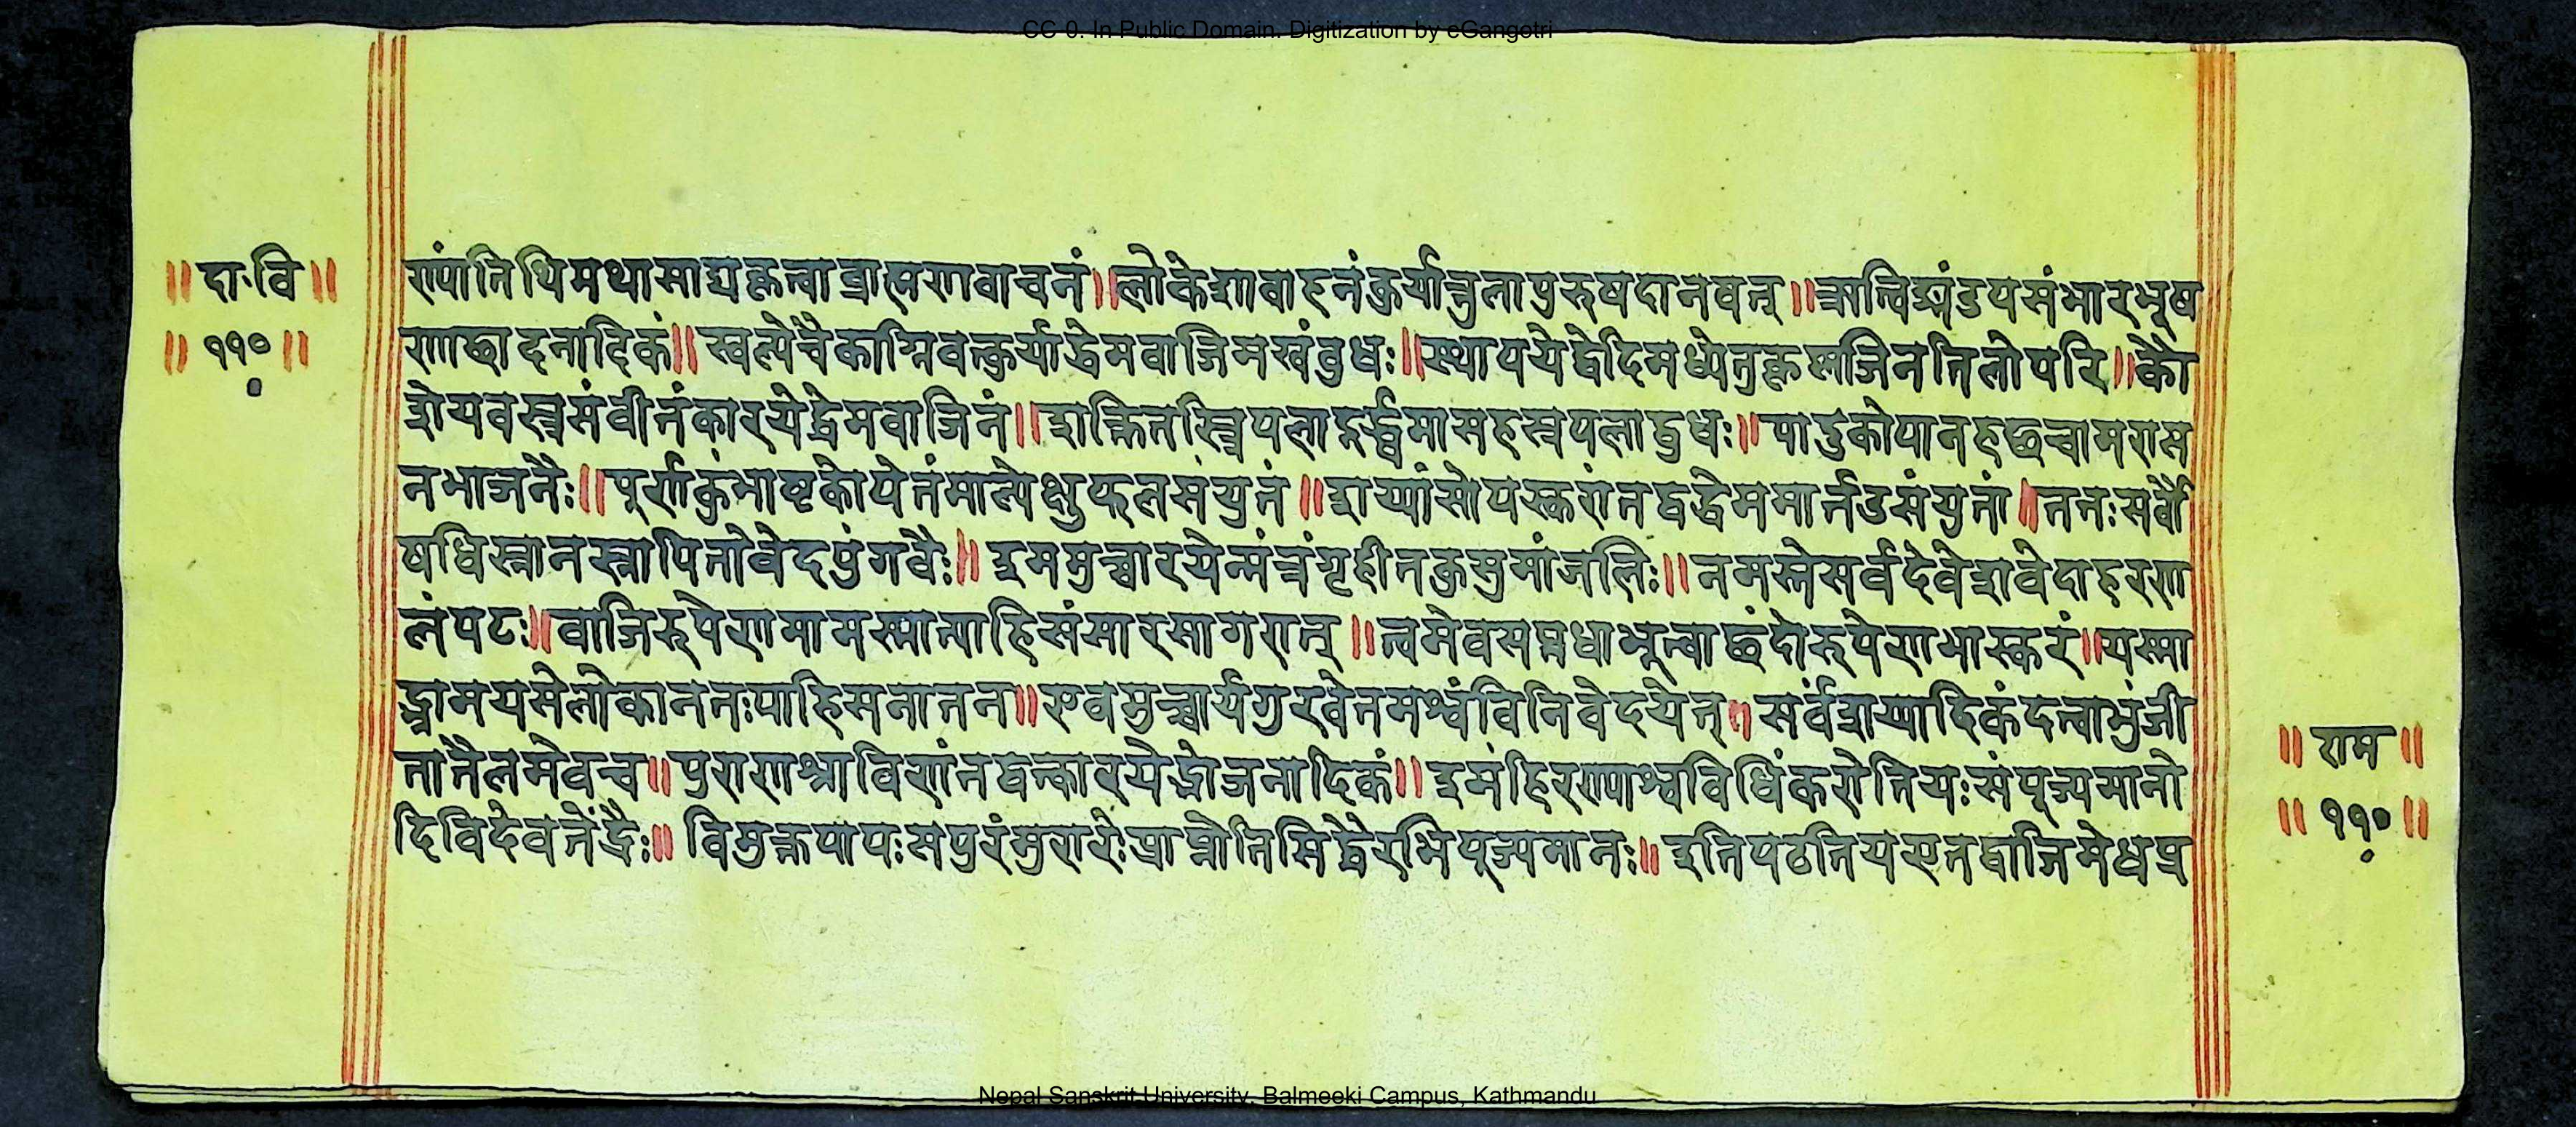 CC-0. In Public Domain. Digitization by eGangotri
॥ दा.वि ॥
॥ ११० ॥
ण्यां तिथिमथासाद्य कृत्वा ब्राह्मणवाचनं ॥ लोकेशावाहनं कुर्यात्तुलापुरुषदानवत् ॥ ऋत्विङ्मंडपसंभारभूष
णाछादनादिकं ॥ स्वल्पे चैकाग्निवत्कुर्याद्धेमवाजिमखं बुधः ॥ स्थापयेद्वेदिमध्ये तु कृष्णाजिनतिलोपरि ॥ कौ
शेयवस्त्रसंवीतं कारयेद्धेमवाजिनं ॥ शक्तितस्त्रिपलादूर्द्ध्वमासहस्रपलाद्बुधः ॥ पादुकोपानहछत्रचामरास
नभाजनैः ॥ पूर्णकुंभाष्टकोपेतं माल्येक्षुफलसंयुतं ॥ शय्यां सोपस्करां तद्वद्धेममार्तंडसंयुतां ॥ ततः सर्वौ
षधिस्नानस्नापितो वेदपुंगवैः ॥ इममुच्चारयेन्मंत्रं गृहीतकुसुमांजलिः ॥ नमस्ते सर्वदेवेश वेदाहरण
लंपटः ॥ वाजिरुपेण मामस्मात्पाहि संसारसागरात् ॥ त्वमेव सप्तधा भूत्वा छंदोरुपेण भास्करं ॥ यस्मा
द्भ्रामयसे लोकानतः पाहि सनातन ॥ एवमुच्चार्य गुरवे तमश्वं विनिवेदयेत् ॥ सर्वशय्यादिकं दत्वा भुंजी
तातैलमेव च ॥ पुराणश्राविणं तद्वत्कारयेद्भोजनादिकं ॥ इमं हिरण्याश्वविधिं करोति यः संपूज्यमानो
दिवि देवतेंद्रैः ॥ विमुक्तपापः स पुरं मुरारेः प्राप्नोति सिद्धेरभिपूज्यमानः ॥ इति पठति य एतद्वाजिमेधप्र
॥ राम ॥
॥ ११० ॥
Nepal Sanskrit University, Balmeeki Campus, Kathmandu